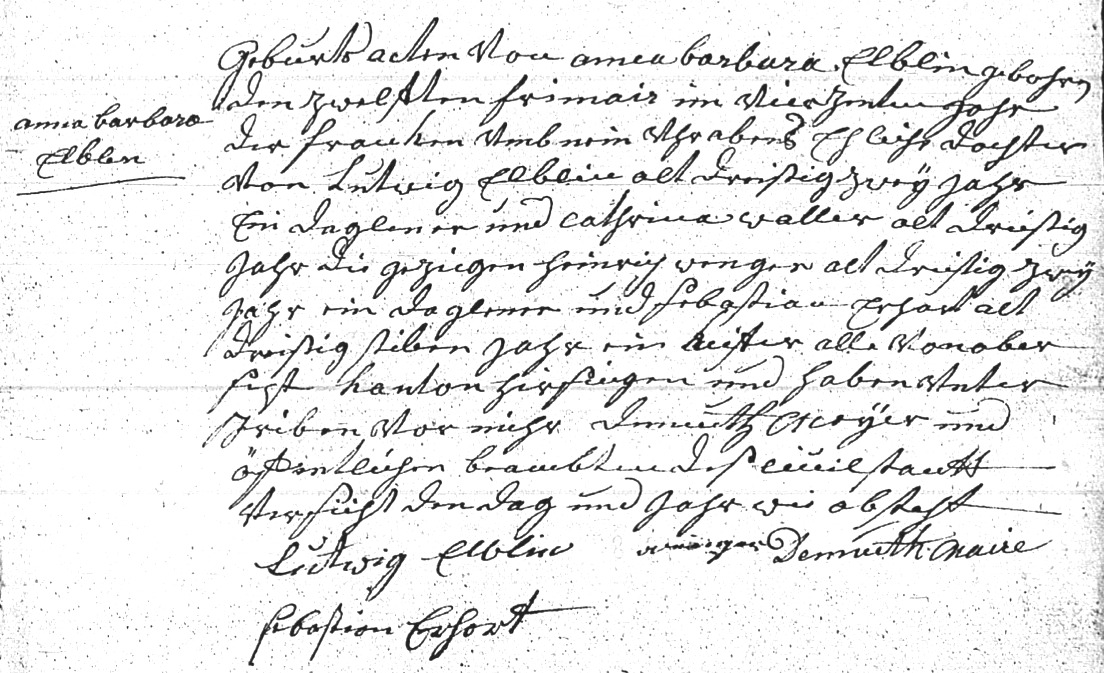 anna barbara
Elblin
Geburts acten Von anna barbara Elblin gebohren
den zwelften frimair im Vierzenten Jahr
der francken Umb nein Uhr abends Ehliche dochter
Von Lutwig Elblin alt dreisig zwey Jahr
Ein daglener und Cathrina waller alt dreisig
Jahr die gezeigen heinrich wenger alt dreisig zwey
Jahr ein daglener und sebastian Erhart alt
dreisig siben Jahr ein alle Von ober
kanton hirsingen und haben Unter
schriben Vor mihr demuth Meyer und
öffentlichen beambten des Civilstantt
Versicht den dag und Jahr wie obsteht
Lutwig Elblin wenger Demuth Maire
sebastian Erhart